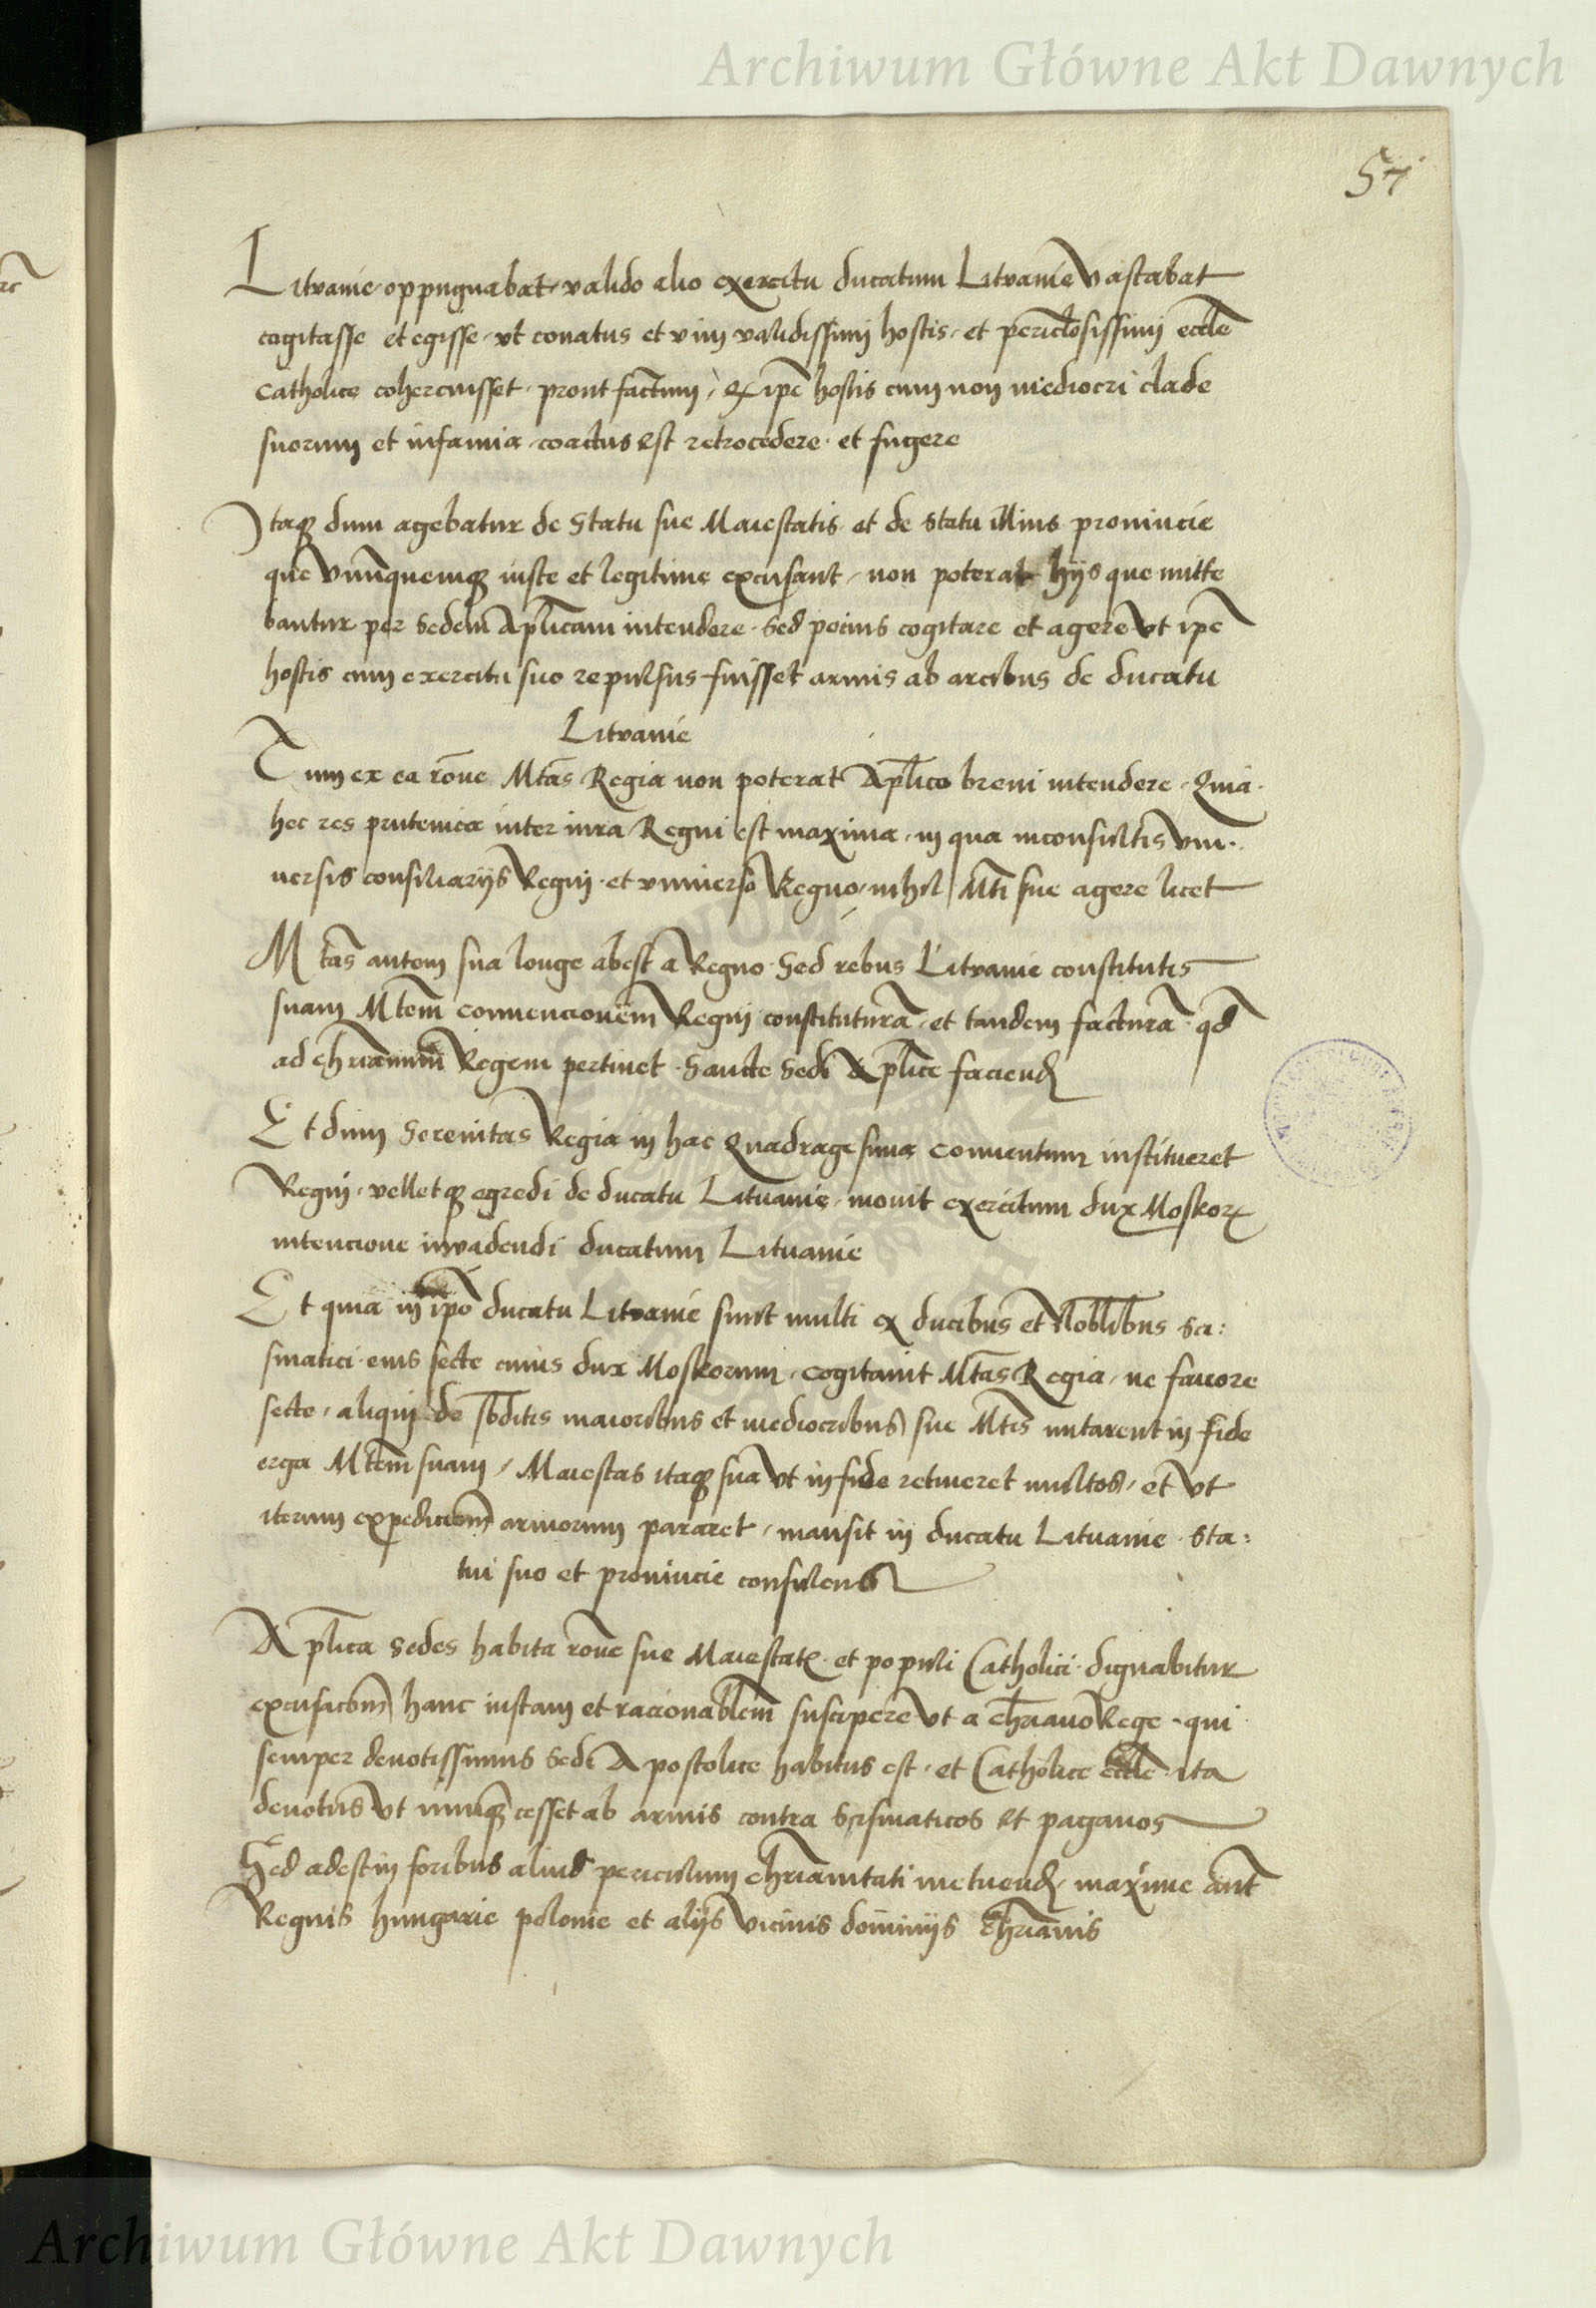 Archiwum Główne Akt Dawnych
54
Litvanie oppugnabat valido alio exercitu ducatum Litvanie vastabat
cogitasse et egisse vt conatus et vim validissimi hostis et periclosissimi eccle
catholice cohercuisset prout factum ipe hostis cum non mediocri clade
suorum et infamia coactus est retrocedere et fugere
Itaq dum agebatur de Statu sue Maiestatis et de statu illius prouincie
que vnuquemq iuste et legitime excusant non poterat hijs que mitte
bantur per Sedem Aplicam intendere Sed pocius cogitare et agere vt ipe
hostis cum exercitu suo repulsus fuisset armis ab arcibus de ducatu
Litvanie
Tum ex ea rone Mtas Regia non poterat Aplico breui intendere Quia
hec res prutenica inter iura Regni est maxima in qua inconsultis vni
uersis consiliarijs Regni et vniuerso Regno nihil Mti sue agere licet
Mtas autem sua longe abest a Regno Sed rebus Litvanie constitutis
suam Mtem conuencionem Regni constitutura et tandem factura qd
ad chrianum Regem pertinet Sancte Sedi Aplice faciend
Et dum Serenitas Regia in hac Quadragesima conuentum institueret
Regni velletq egredi de ducatu Lituanie mouit exercitum dux Moskor
intencione invadendi ducatum Lituanie
Et quia in ipo ducatu Litvanie sunt multi ex ducibus et Noblibus Sci:
smatici eius secte cuius dux Moskorum cogitauit Mtas Regia ne fauore
secte aliqui de sbditis maioribus et mediocribus sue Mtis nutarent in fide
erga Mtem suam Maiestas itaq sua vt in fide retineret multos et vt
iterum expedicom armorum pararet mansit in ducatu Lituanie Sta:
tui suo et prouincie consulens
Aplica Sedes habita rone sue Maiestat et populi Catholici dignabitur
excusacom hanc iustam et racionablem suscipere vt a chriano Rege qui
semper deuotissimus Sedi Apostolice habitus est et Catholice eccle ita
deuotus vt nunq cesset ab armis contra Scismaticos et paganos
Sed adest in foribus aliud periculum chrianitati metuend maxime aut
Regnis hungarie polonie et alijs vicinis dominijs chrianis
Archiwum Główne Akt Dawnych